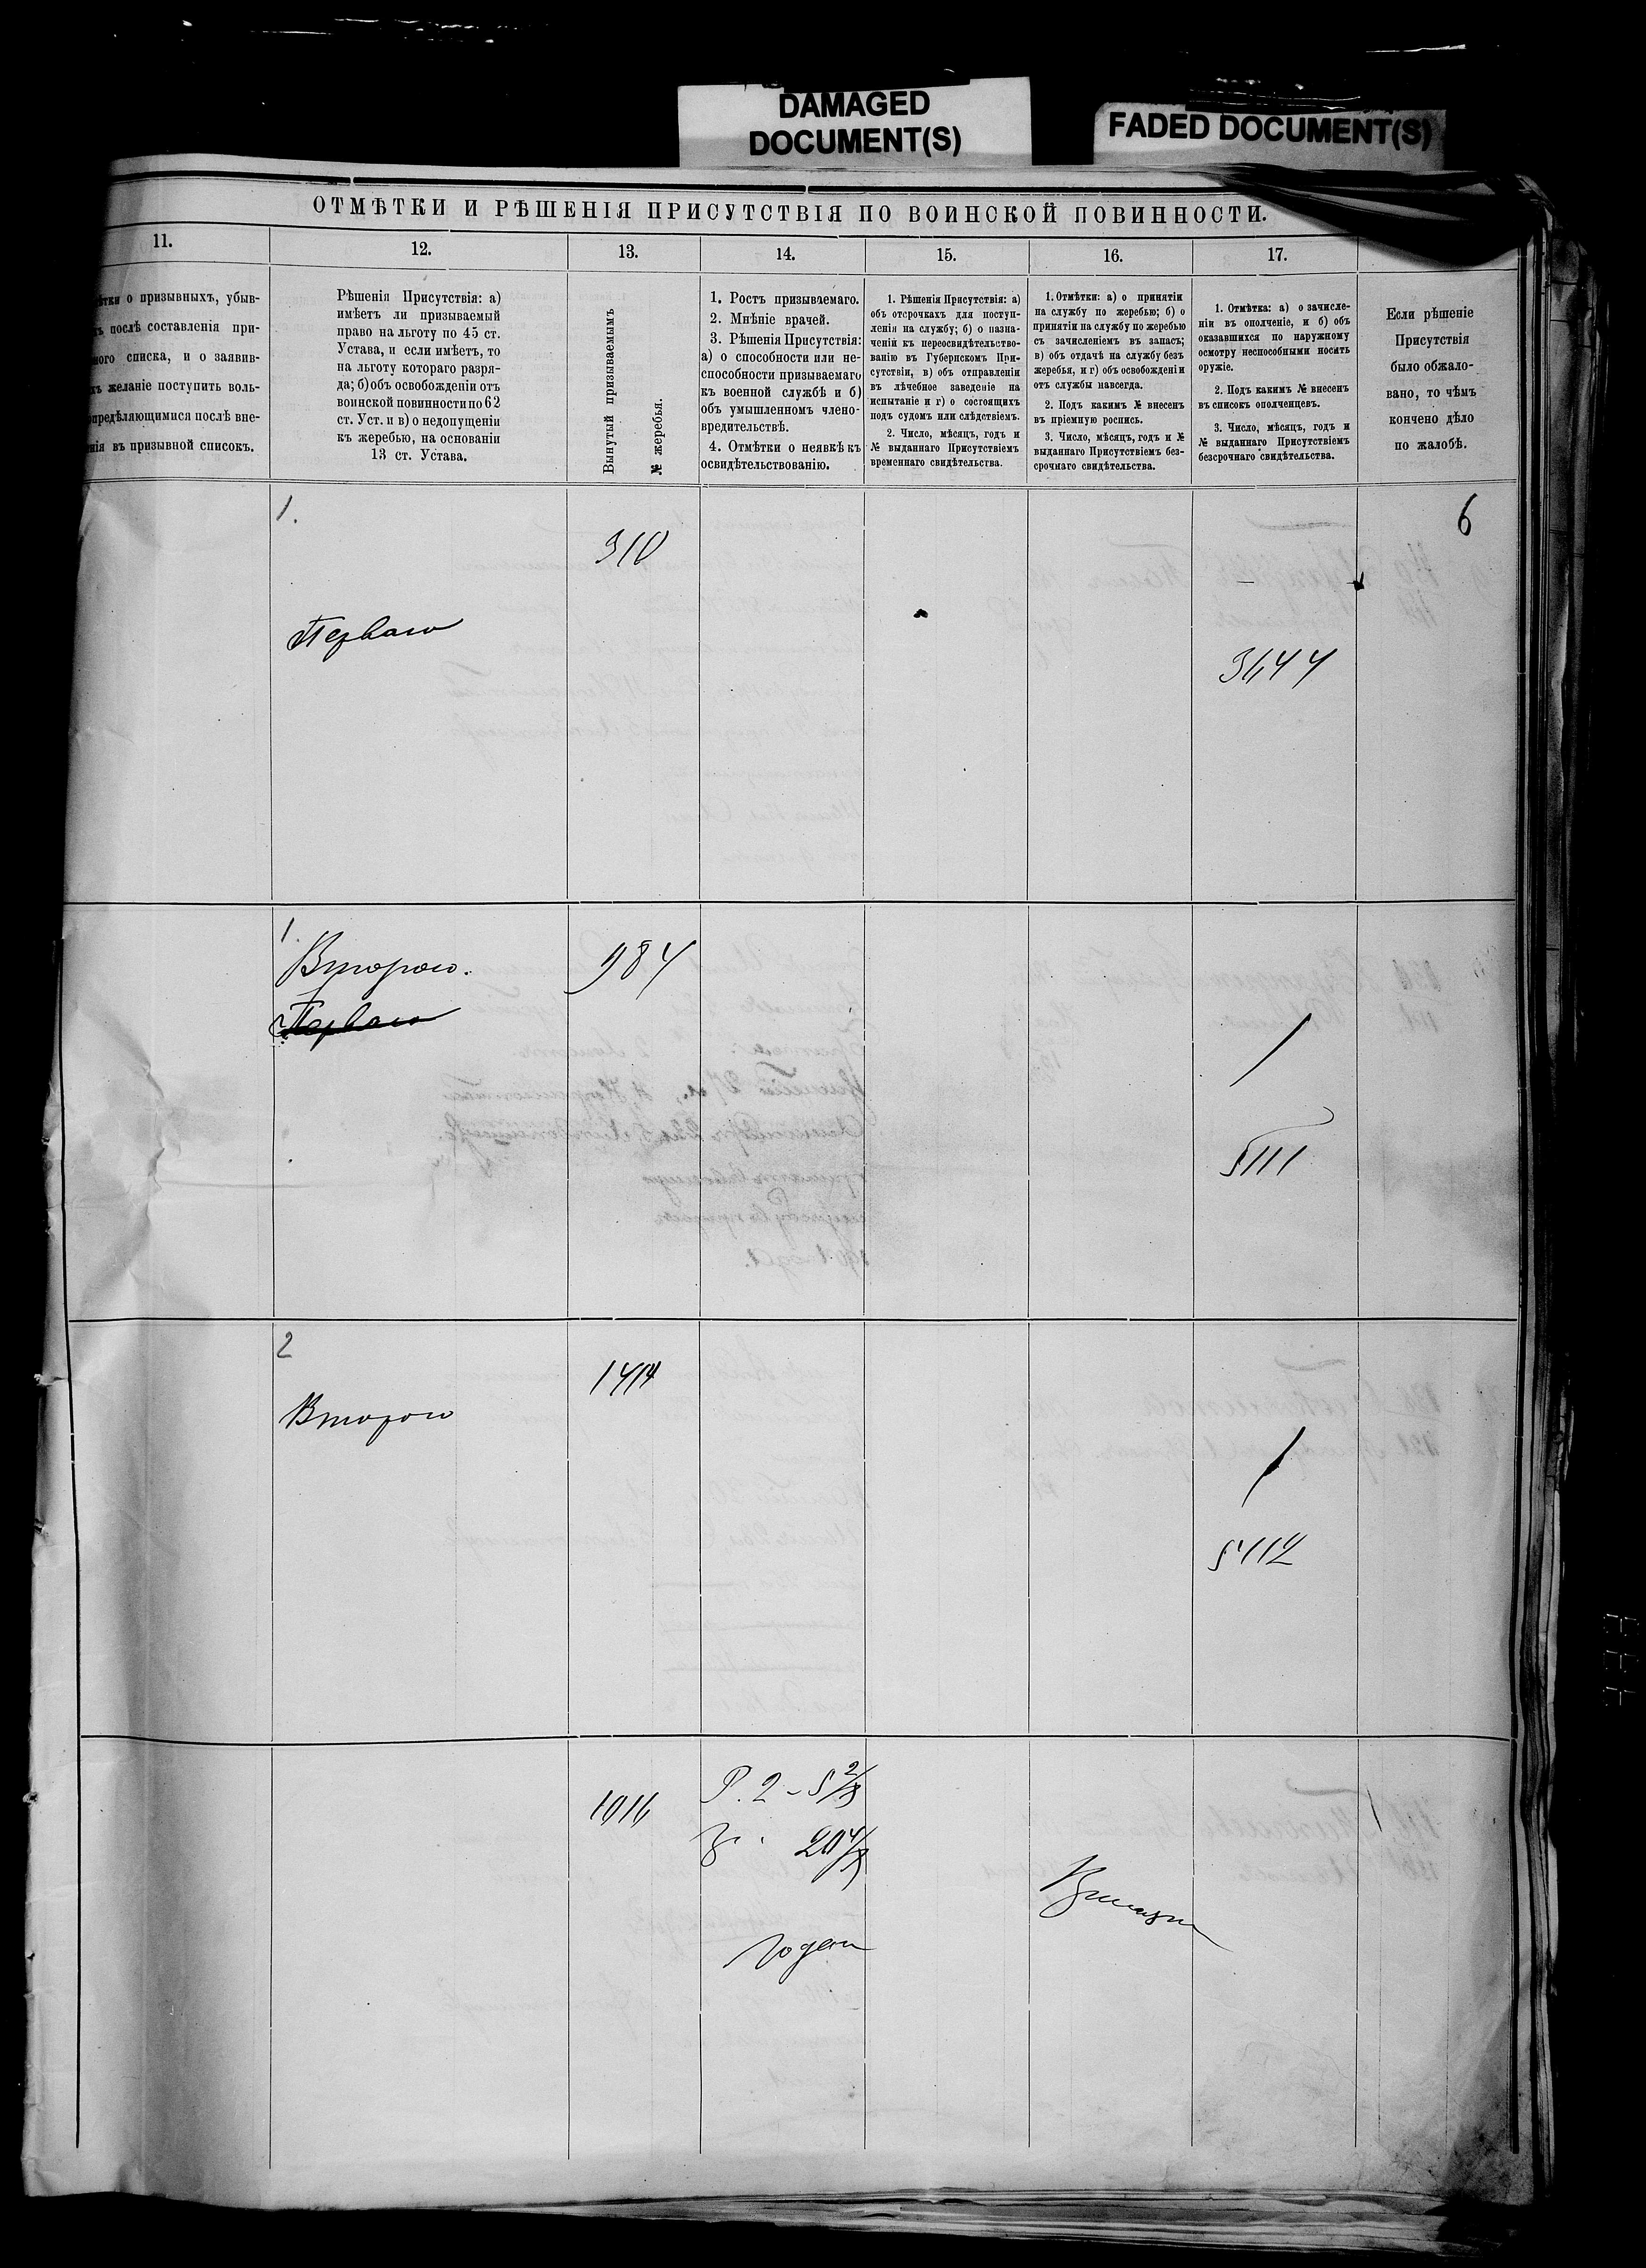 DAMAGED
DOCUMENT(S)
FADED DOCUMENT(S)
ОТМѢТКИ И РѢШЕНІЯ ПРИСУТСТВІЯ ПО ВОИНСКОЙ ПОВИННОСТИ.
11.
12.
13.
14.
15.
16.
17.
о призывныхъ, убыв-
послѣ составленія при-
списка, и о заявив-
желаніе поступить воль-
опредѣляющимися послѣ вне-
въ призывной списокъ.
Рѣшенія Присутствія: а)
имѣетъ ли призываемый
право на льготу по 45 ст.
Устава, и если имѣетъ, то
на льготу котораго разря-
да; б) объ освобожденіи отъ
воинской повинности по 62
ст. Уст. и в) о недопущеніи
къ жеребью, на основаніи
13 ст. Устава.
Вынутый призываемымъ
№ жеребья.
1. Ростъ призываемаго.
2. Мнѣніе врачей.
3. Рѣшенія Присутствія:
а) о способности или не-
способности призываемаго
къ военной службѣ и б)
объ умышленномъ члено-
вредительствѣ.
4. Отмѣтки о неявкѣ къ
освидѣтельствованію.
1. Рѣшенія Присутствія: а)
объ отсрочкахъ для поступ-
ленія на службу; б) о назна-
ченіи къ переосвидѣтельство-
ванію въ Губернскомъ При-
сутствіи, в) объ отправленіи
въ лѣчебное заведеніе на
испытаніе и г) о состоящихъ
подъ судомъ или слѣдствіемъ.
2. Число, мѣсяцъ, годъ и
№ выданнаго Присутствіемъ
временнаго свидѣтельства.
1. Отмѣтки: а) о принятіи
на службу по жеребью; б) о
принятіи на службу по жеребью
съ зачисленіемъ въ запасъ;
в) объ отдачѣ на службу безъ
жеребья, и г) объ освобожденіи
отъ службы навсегда.
2. Подъ какимъ № внесенъ
въ пріемную роспись.
3. Число, мѣсяцъ, годъ и №
выданнаго Присутствіемъ без-
срочнаго свидѣтельства.
1. Отмѣтка: а) о зачисле-
ніи въ ополченіе, и б) объ
оказавшихся по наружному
осмотру неспособными носить
оружіе.
2. Подъ какимъ № внесенъ
въ списокъ ополченцевъ.
3. Число, мѣсяцъ, годъ и
№ выданнаго Присутствіемъ
безсрочнаго свидѣтельства.
Если рѣшеніе
Присутствія
было обжало-
вано, то чѣмъ
кончено дѣло
по жалобѣ.
1.
310
6
Перваго
3644
1.
Второго.
984
Перваго
5111
2
1414
Второго
5112
1016
Р. 2 - 5 2/8
20 4/8
годен